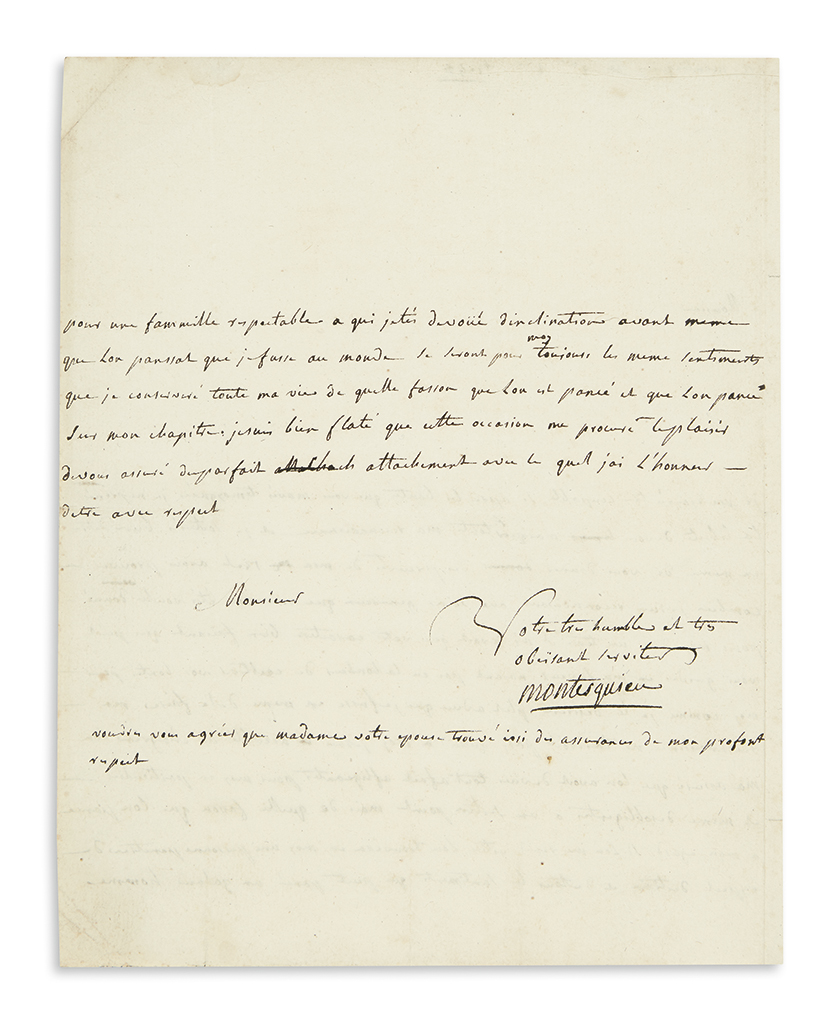 pour une fammille respectable a qui jetés devoüé dinclination avant meme
que Lon panssat que je fusse au monde se seront pour moy toujours les meme sentiments
que je conserveré toute ma vie de quelle fasson que Lon est pancé et que Lon pance
sur mon chapitre. jesuis bien flaté que cette occasion me procure leplaisir
devous assuré duparfait attachement avec le quel jai L'honneur —
detre avec respect
Monsieur
Votre tres humble et tres
obeïsant serviteur
montesquieu
voudres vous agrées que madame votre epouse trouvé issi des assurances de mon profont
respect